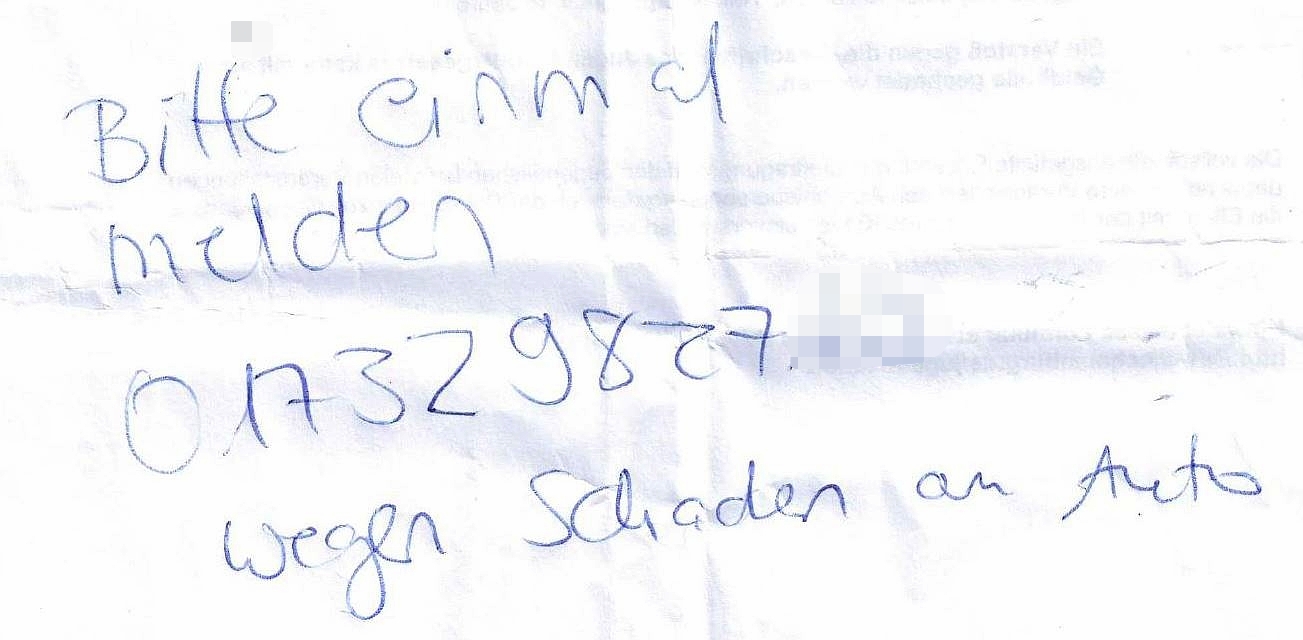 Bitte einmal
melden
017329827
wegen Schaden an Auto